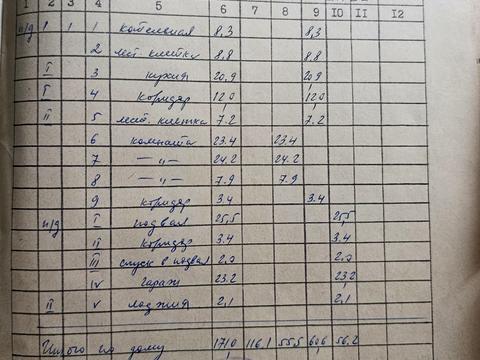 1 2 3 4 5 6 7 8 9 10 11 12
п/д 1 1 1 котельная 8,3 8,3
2 лест. клетка 8,8 8,8
I 3 кухня 20,9 20,9
I 4 коридор 12,0 12,0
II 5 лест. клетка 7.2 7.2
6 комната 23.4 23.4
7 — „ — 24.2 24.2
8 — „ — 7.9 7.9
9 коридор 3.4 3.4
п/д I подвал 25,5 25,5
II коридор 3.4 3.4
III спуск в подвал 2,0 2,0
IV гараж 23.2 23,2
II V лоджия 2,1 2,1
Итого по дому 171,0 116,1 55,5 60,6 56,2